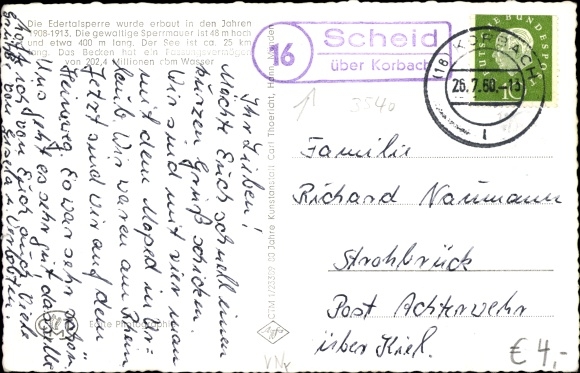 Die Edertalsperre wurde erbaut in den Jahren
1908-1913. Die gewaltige Sperrmauer ist 48 m hoch
und etwa 400 m lang. Der See ist ca. 25 km
lang. Das Becken hat ein Fassungsvermögen
von 202,4 Millionen cbm Wasser
16
Scheid
über Korbach
(16) KORBACH 1
26.7.60.-13
DEUTSCHE BUNDESPOST
10
3540
Ihr Lieben!
Möchte Euch schnell einen
kurzen Gruß schicken.
Wir sind mit vier man
mit dem Moped in Ur-
laub. Wir waren am Rhein
Jetzt sind wir auf dem
Heimweg. Es war sehr schön.
Uns geht es sehr gut dasselbe
hoffe ich von Euch auch. Viele
Grüße von Gisela
Familie
Richard Naumann
Strohbrück
Post Achterwehr
über Kiel.
Echte Photographie
80 Jahre Kunstanstalt Carl Thoericht, Hann. Münden
Agfa
€ 4,-